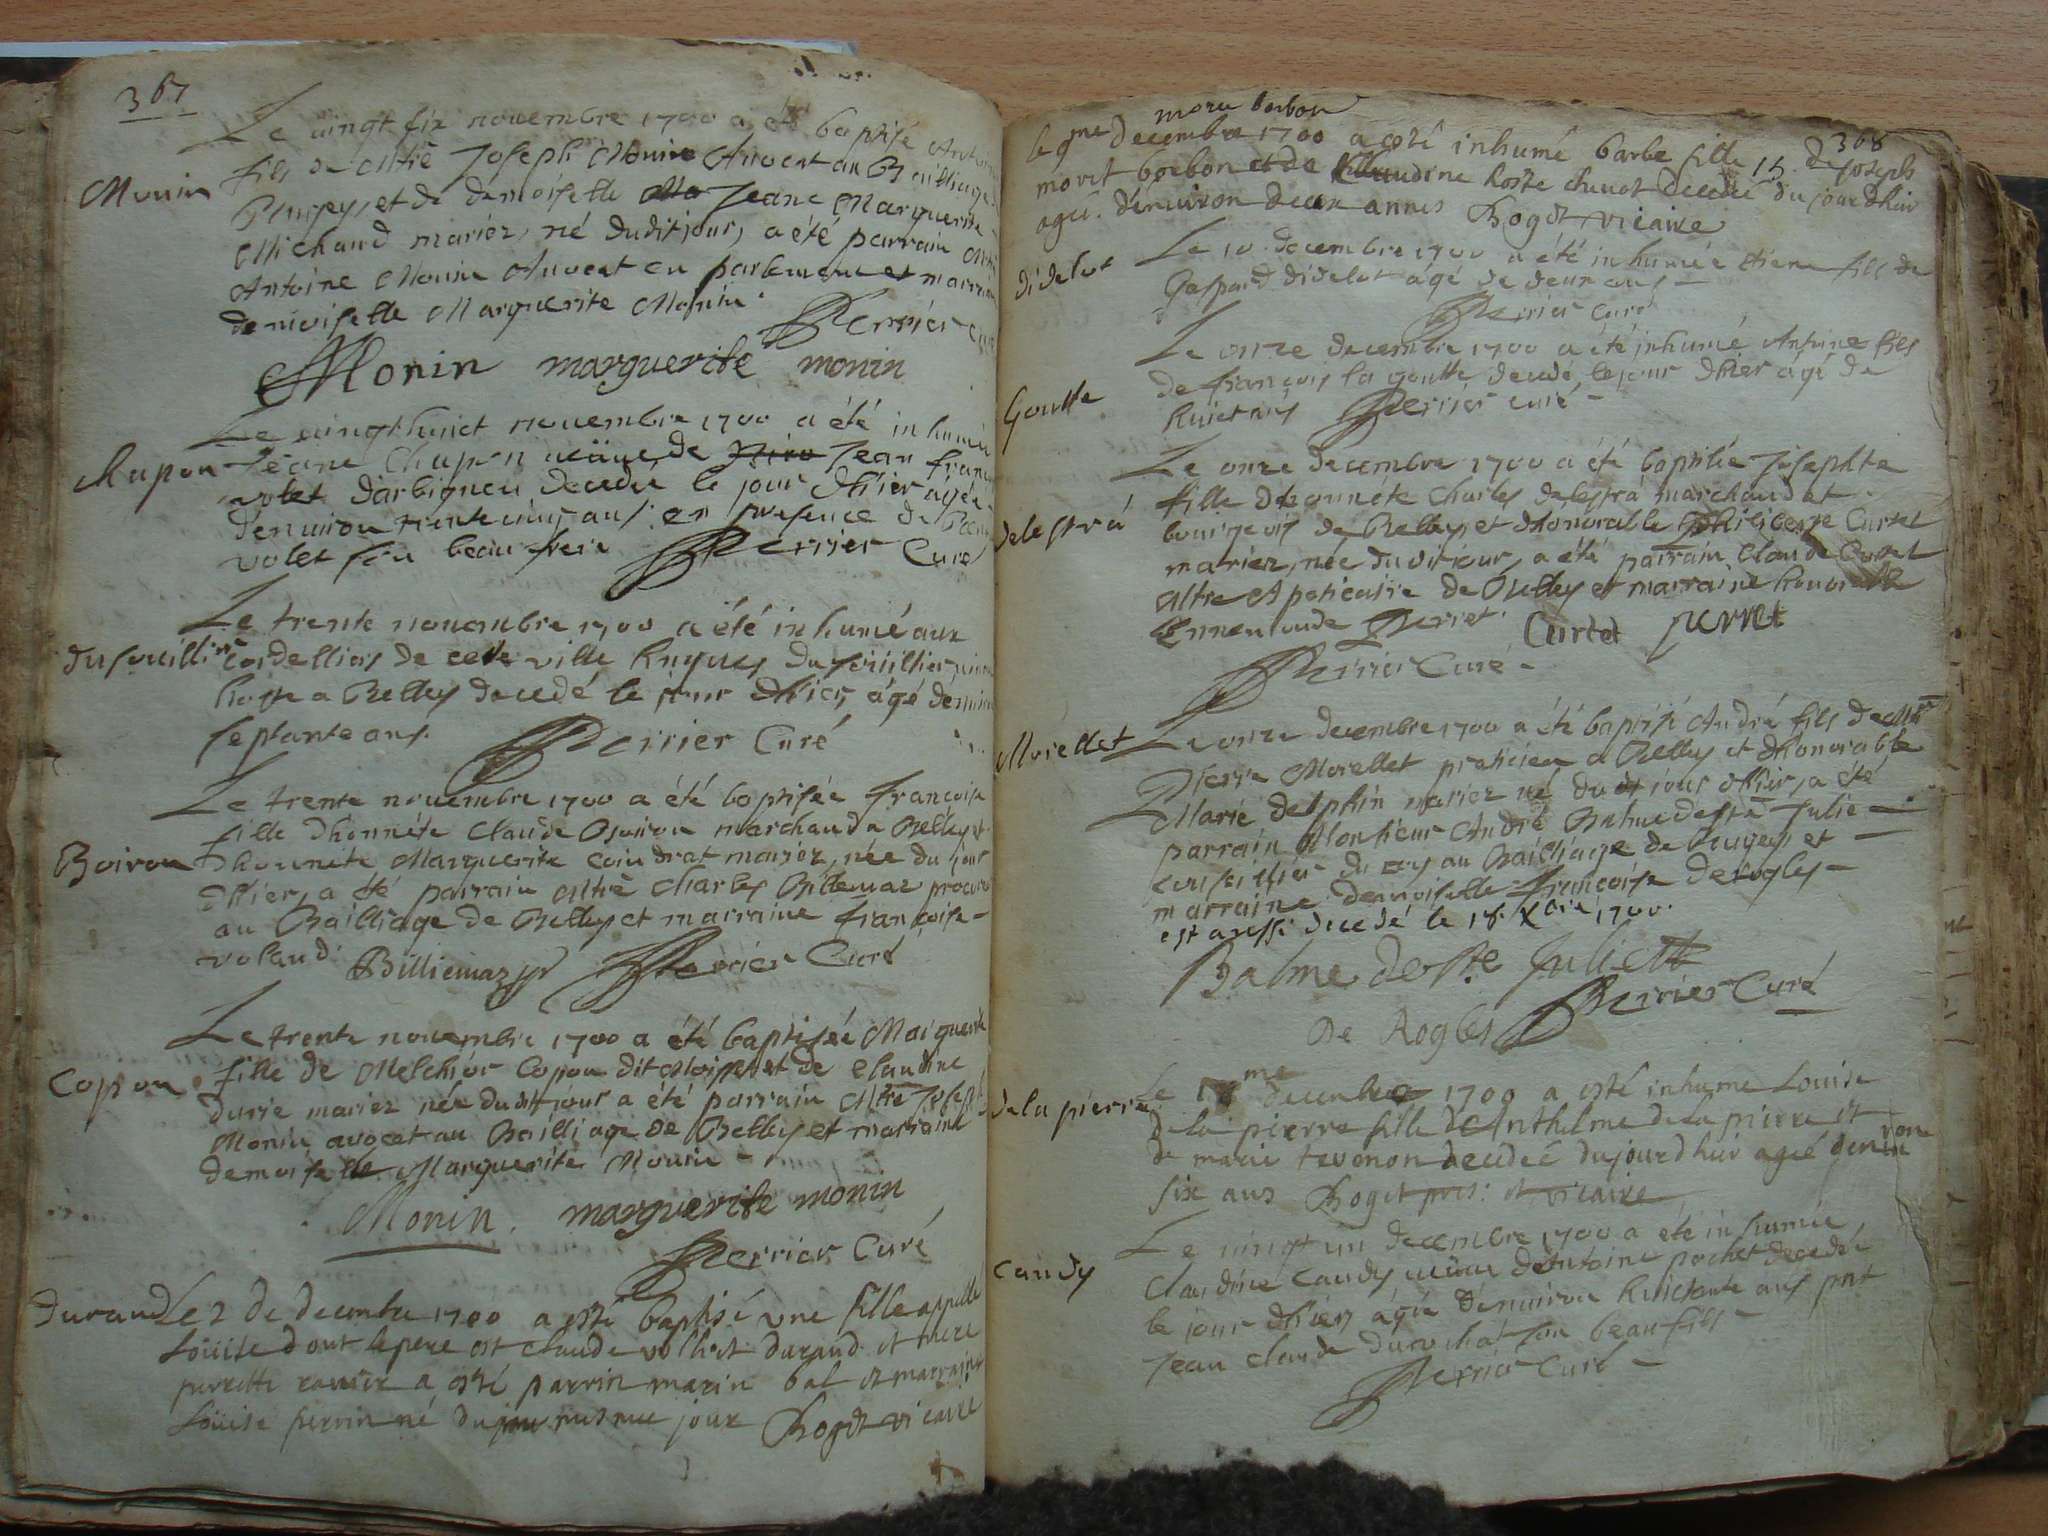 367
Le vingt six novembre 1700 a été baptisé Antoine
Monin
fils de Mtre Joseph Monin Avocat au Bailliage de
Beugey, et de demoiselle Jeane Marguerite
Michaud mariez, né duditjour, a été parrain Mtre
Antoine Monin Avocat en parlement et marraine
demoiselle Marguerite Monin.
Perrier Curé
Monin marguerite monin
Le vingthuict novembre 1700 a été inhumée
Chapon
Jeane Chapon veüve de Jean francois
volet darbigneu decedée le jour dhier agée
denviron trente cinq ans en presence de
volet son beau frere Perrier Curé
Le trente novembre 1700 a été inhumé aux
dufouillier
Cordelliers de cete ville hugues dufouillier
hoste a Belley decedé le jour dhier, agé denviron
septante ans. Perrier Curé
Le trente novembre 1700 a été baptisée francoise
fille dhonnéte Claude Boiron marchand a Belley et
Boiron
dhonnete Marguerite coindrat mariez, née du jour
dhier, a été parrain Mtre Charles Billiemaz procureur
au Bailliage de Belley et marraine francoise
volaud. Billiemaz Perrier Curé
Le trente novembre 1700 a été baptisée Marguerite
Copon
fille de Melchior Copon dit et de Claudine
durie mariez née dudit jour a été parrain Mtre Joseph
Monin avocat au Bailliage de Belley et marraine
demoiselle Marguerite Monin
Monin. marguerite monin
Perrier Curé
durand
Le 2 de decembre 1700 a esté baptisé une fille appellée
Loüise dont le pere est claude vollhet durand et mere
perrette a esté parrin marin bal et marraine
Loüise perrin né du mesme jour Bogdt vicaire
368
moru borbon
le 9me decembre 1700 a esté inhumé barbe fille de joseph
morit borbon et de Claudine hoste decedé du jourdhui
ageé denviron deux annes Bogdt vicaire
didelot
Le 10 decembre 1700 a été inhumée etiene fils de
Gaspard didelot agé de deux ans
Perrier curé
Le onze decembre 1700 a été inhumé Antoine fils
Goutte
de francois la goutte decedé le jour dhier agé de
huict ans Perrier curé
Le onze decembre 1700 a été baptisée Josephte
delestra
fille dhonnéte Charles delestra marchand et
bourgeois de Belley et dhonorable philiberte Curtet
mariez, née duditjour, a été parrain Claude Curtet
Mtre Apoticaire de Belley et marraine honorable
Perret. Curtet perret
Perrier Curé
Morellet
Le onze decembre 1700 a été baptisé André fils de Mtre
Pierre Morellet praticien a Belley et dhonorable
Marie delphin mariez né du jour dhier, a été
parrain Monsieur André Balme de Ste Julie
conseillier du roy au Bailliage de beugey, et
marraine demoiselle francoise de rogles
est aussi decedé le 18. Xbre 1700.
Balme de Ste Juliette
Perrier Curé
De Rogles
de la pierre
Le 18me decembre 1700 a esté inhumé Louise
de la pierre fille d'Anthelme de la pierre et
de marie tevenon decedeé dujourdhui ageé denviron
six ans Bogdt pres: et vicaire
Le vingt un decembre 1700 a été inhumée
Caudy
Claudine Caudy veüve d'Antoine pochet decedée
le jour dhier, agée denviron huictante ans pnt
Jean claude son beau fils
Perrier Curé